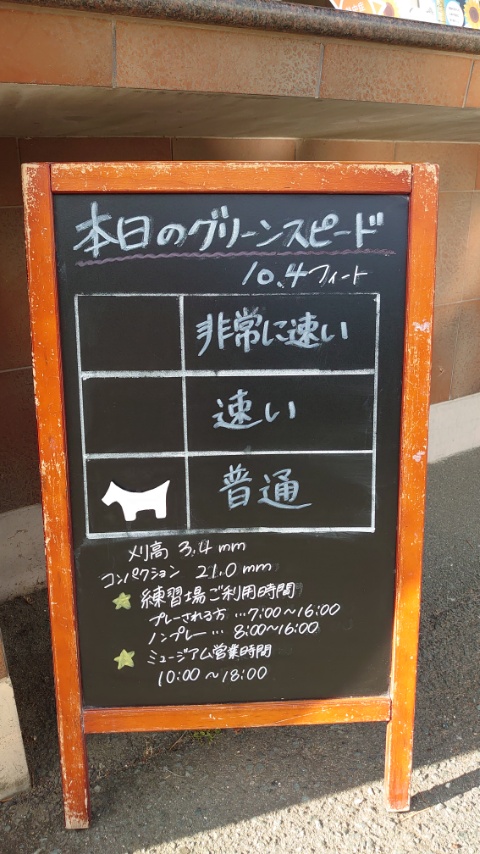 本日のグリーンスピード
10.4フィート
非常に速い
速い
普通
刈高 3.4mm
コンパクション 21.0mm
練習場ご利用時間
プレーされる方…7:00〜16:00
ノンプレー… 8:00〜16:00
ミュージアム営業時間
10:00〜18:00